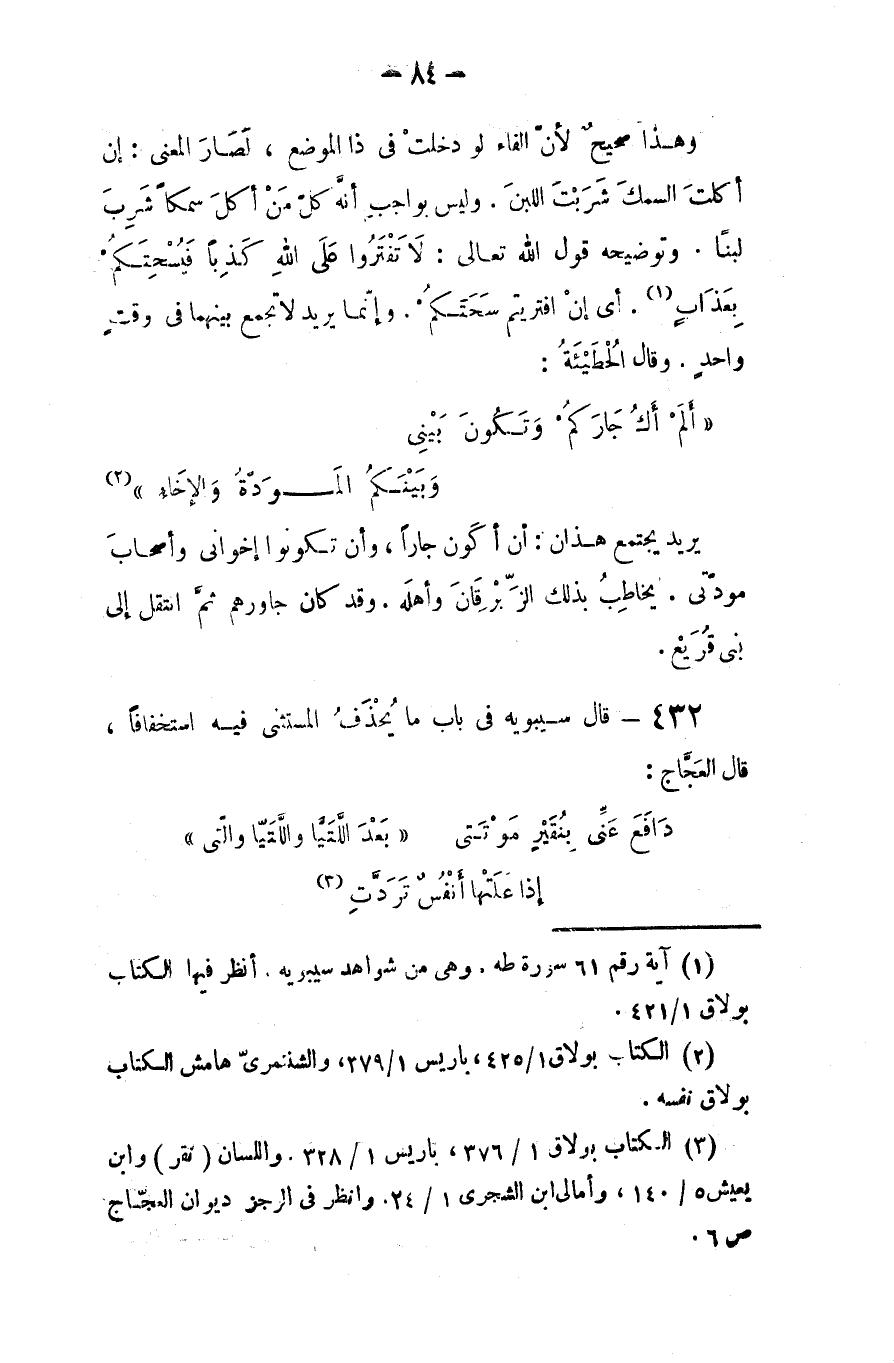 — ٨٤ —
وهــذا صحيحٌ لأنّ الفاء لو دخلتْ فى ذا الموضع ، لَصَارَ المعنى : إن
أكلتَ السمكَ شَرَبْتَ اللبنَ . وليس بواجبٍ أنَّه كلّ مَنْ أكلَ سمكاً شَرِبَ
لبنًا . وتوضيحه قول الله تعـالى : لَا تَفْتَرُوا عَلَى اللهِ كَـذِباً فَيُسْحِتَـكُمْ
بِعَذَابٍ (١) . أى إنْ افتريتم سَحَتَـكُمْ . وإنّمـا يريد لا تجمع بينهما فى وقتٍ
واحدٍ . وقال الْحُطَيْئَةُ :
« أَلَمْ أَكُ جَارَكُمْ وَتَـكُونَ بَيْنِى
وَبَيْنَـكُمُ المَـــوَدّةُ وَالإخَاءِ » (٢)
يريد يجتمع هــذان : أن أكون جاراً ، وأن تـكونوا إخوانى وأصحـابَ
مودّتى . يخاطِبُ بذلك الزِّبْرِقَانَ وأهلَه . وقد كان جاورهم ثمَّ انتقل إلى
بنى قُرَيْعٍ .
٤٣٢ — قال سـيبويه فى باب ما يُحْذَفُ المستثنى فيـه استخفافًا ،
قال العَجَّاج :
دَافَعَ عَنِّى بِنُقَيْرٍ مَوْتَـتى « بَعْدَ اللَّتَيَّا واللَّتَيّا والّتى »
إذا عَلَتْها أَنْفُسٌ تَرَدَّتِ (٣)
(١) آية رقم ٦١ سورة طه . وهى من شواهد سيبويه . أنظر فيها الـكتاب
بولاق ٤٢١/١ .
(٢) الـكتاب بولاق ٤٢٥/١ ، باريس ٢٧٩/١ ، والشنتمرىّ هامش الـكتاب
بولاق نفسه .
(٣) الـكتاب بولاق ١ / ٣٧٦ ، باريس ١ / ٣٢٨ . واللسان ( نقر ) وابن
يعيش ٥ / ١٤٠ ، وأمالى ابن الشجرى ١ / ٢٤ . وانظر فى الرجز ديوان العجّـاج
ص ٦ .